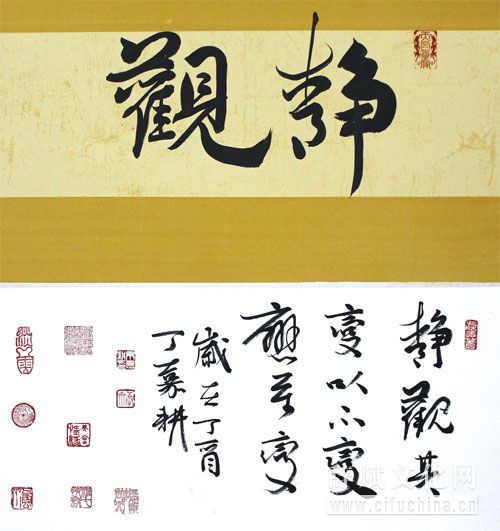 靜觀
靜觀其
變以不變
應萬變
歲在丁酉
丁慕耕
辞赋文化网
www.cifuchina.com